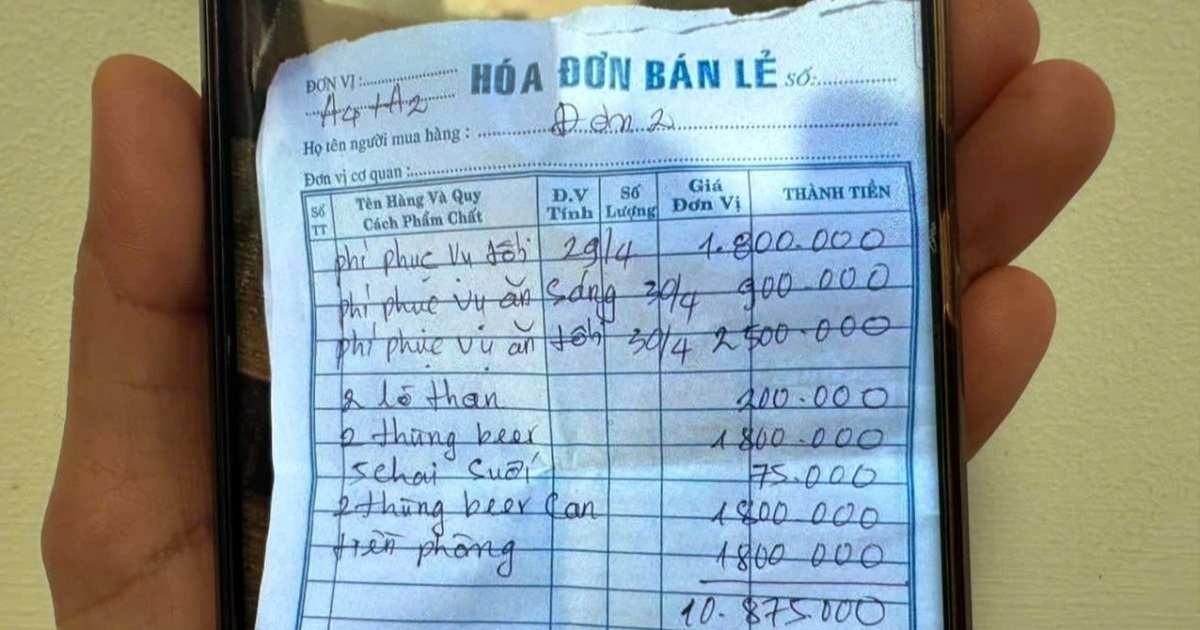 HÓA ĐƠN BÁN LẺ Số:
ĐƠN VỊ:
A4+A2
Họ tên người mua hàng : Đơn 2
Đơn vị cơ quan :
Số TT Tên Hàng Và Quy Cách Phẩm Chất Đ.V Tính Số Lượng Giá Đơn Vị THÀNH TIỀN
phí phục vụ tối 29/4 1.800.000
phí phục vụ ăn sáng 30/4 900.000
phí phục vụ ăn tối 30/4 2500.000
2 lò than 200.000
2 thùng beer 1800.000
5 chai suối 75.000
2 thùng beer Can 1800 000
tiền phòng 1800 000
10.875.000